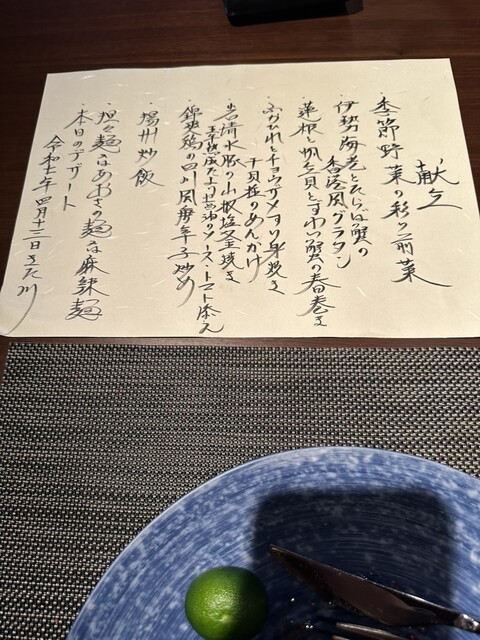 献立
・季節野菜の彩り前菜
・伊勢海老とたらば蟹の
香港風グラタン
・蓮根と帆立貝とずわい蟹の春巻き
・ふかひれとチョウザメすり身焼き
干貝柱のあんかけ
・岩清水豚の山椒塩釜焼き
年熟成たまり醤油のソース・トマト添え
・錦爽鶏の四川風唐辛子炒め
・揚州炒飯
・担々麺 又は あおさの麺 又は 麻辣麺
・本日のデザート
令和七年 四月十三日